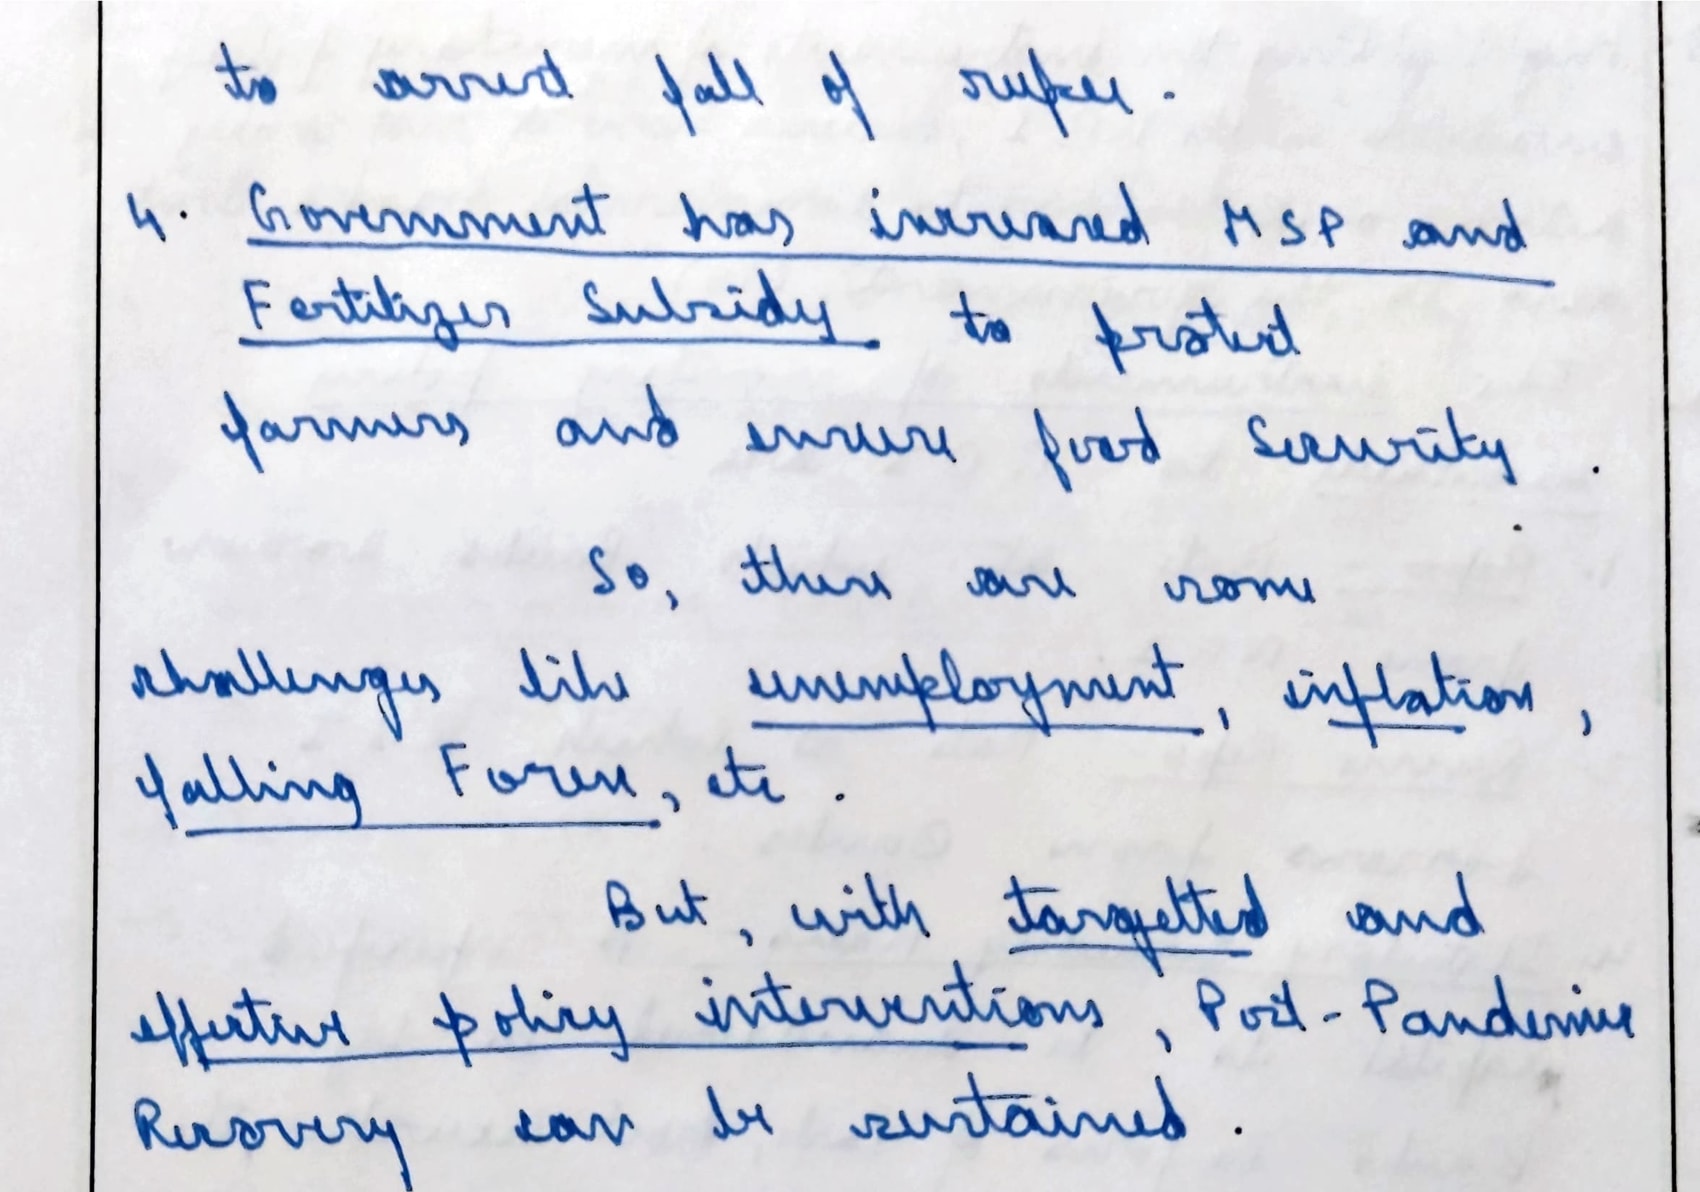 to arrest fall of rupee.
4. Government has increased MSP and
Fertilizer Subsidy to protect
farmers and ensure food Security.
So, there are some
challenges like unemployment, inflation,
falling Forex, etc.
But, with targetted and
effective policy interventions, Post-Pandemic
Recovery can be sustained.